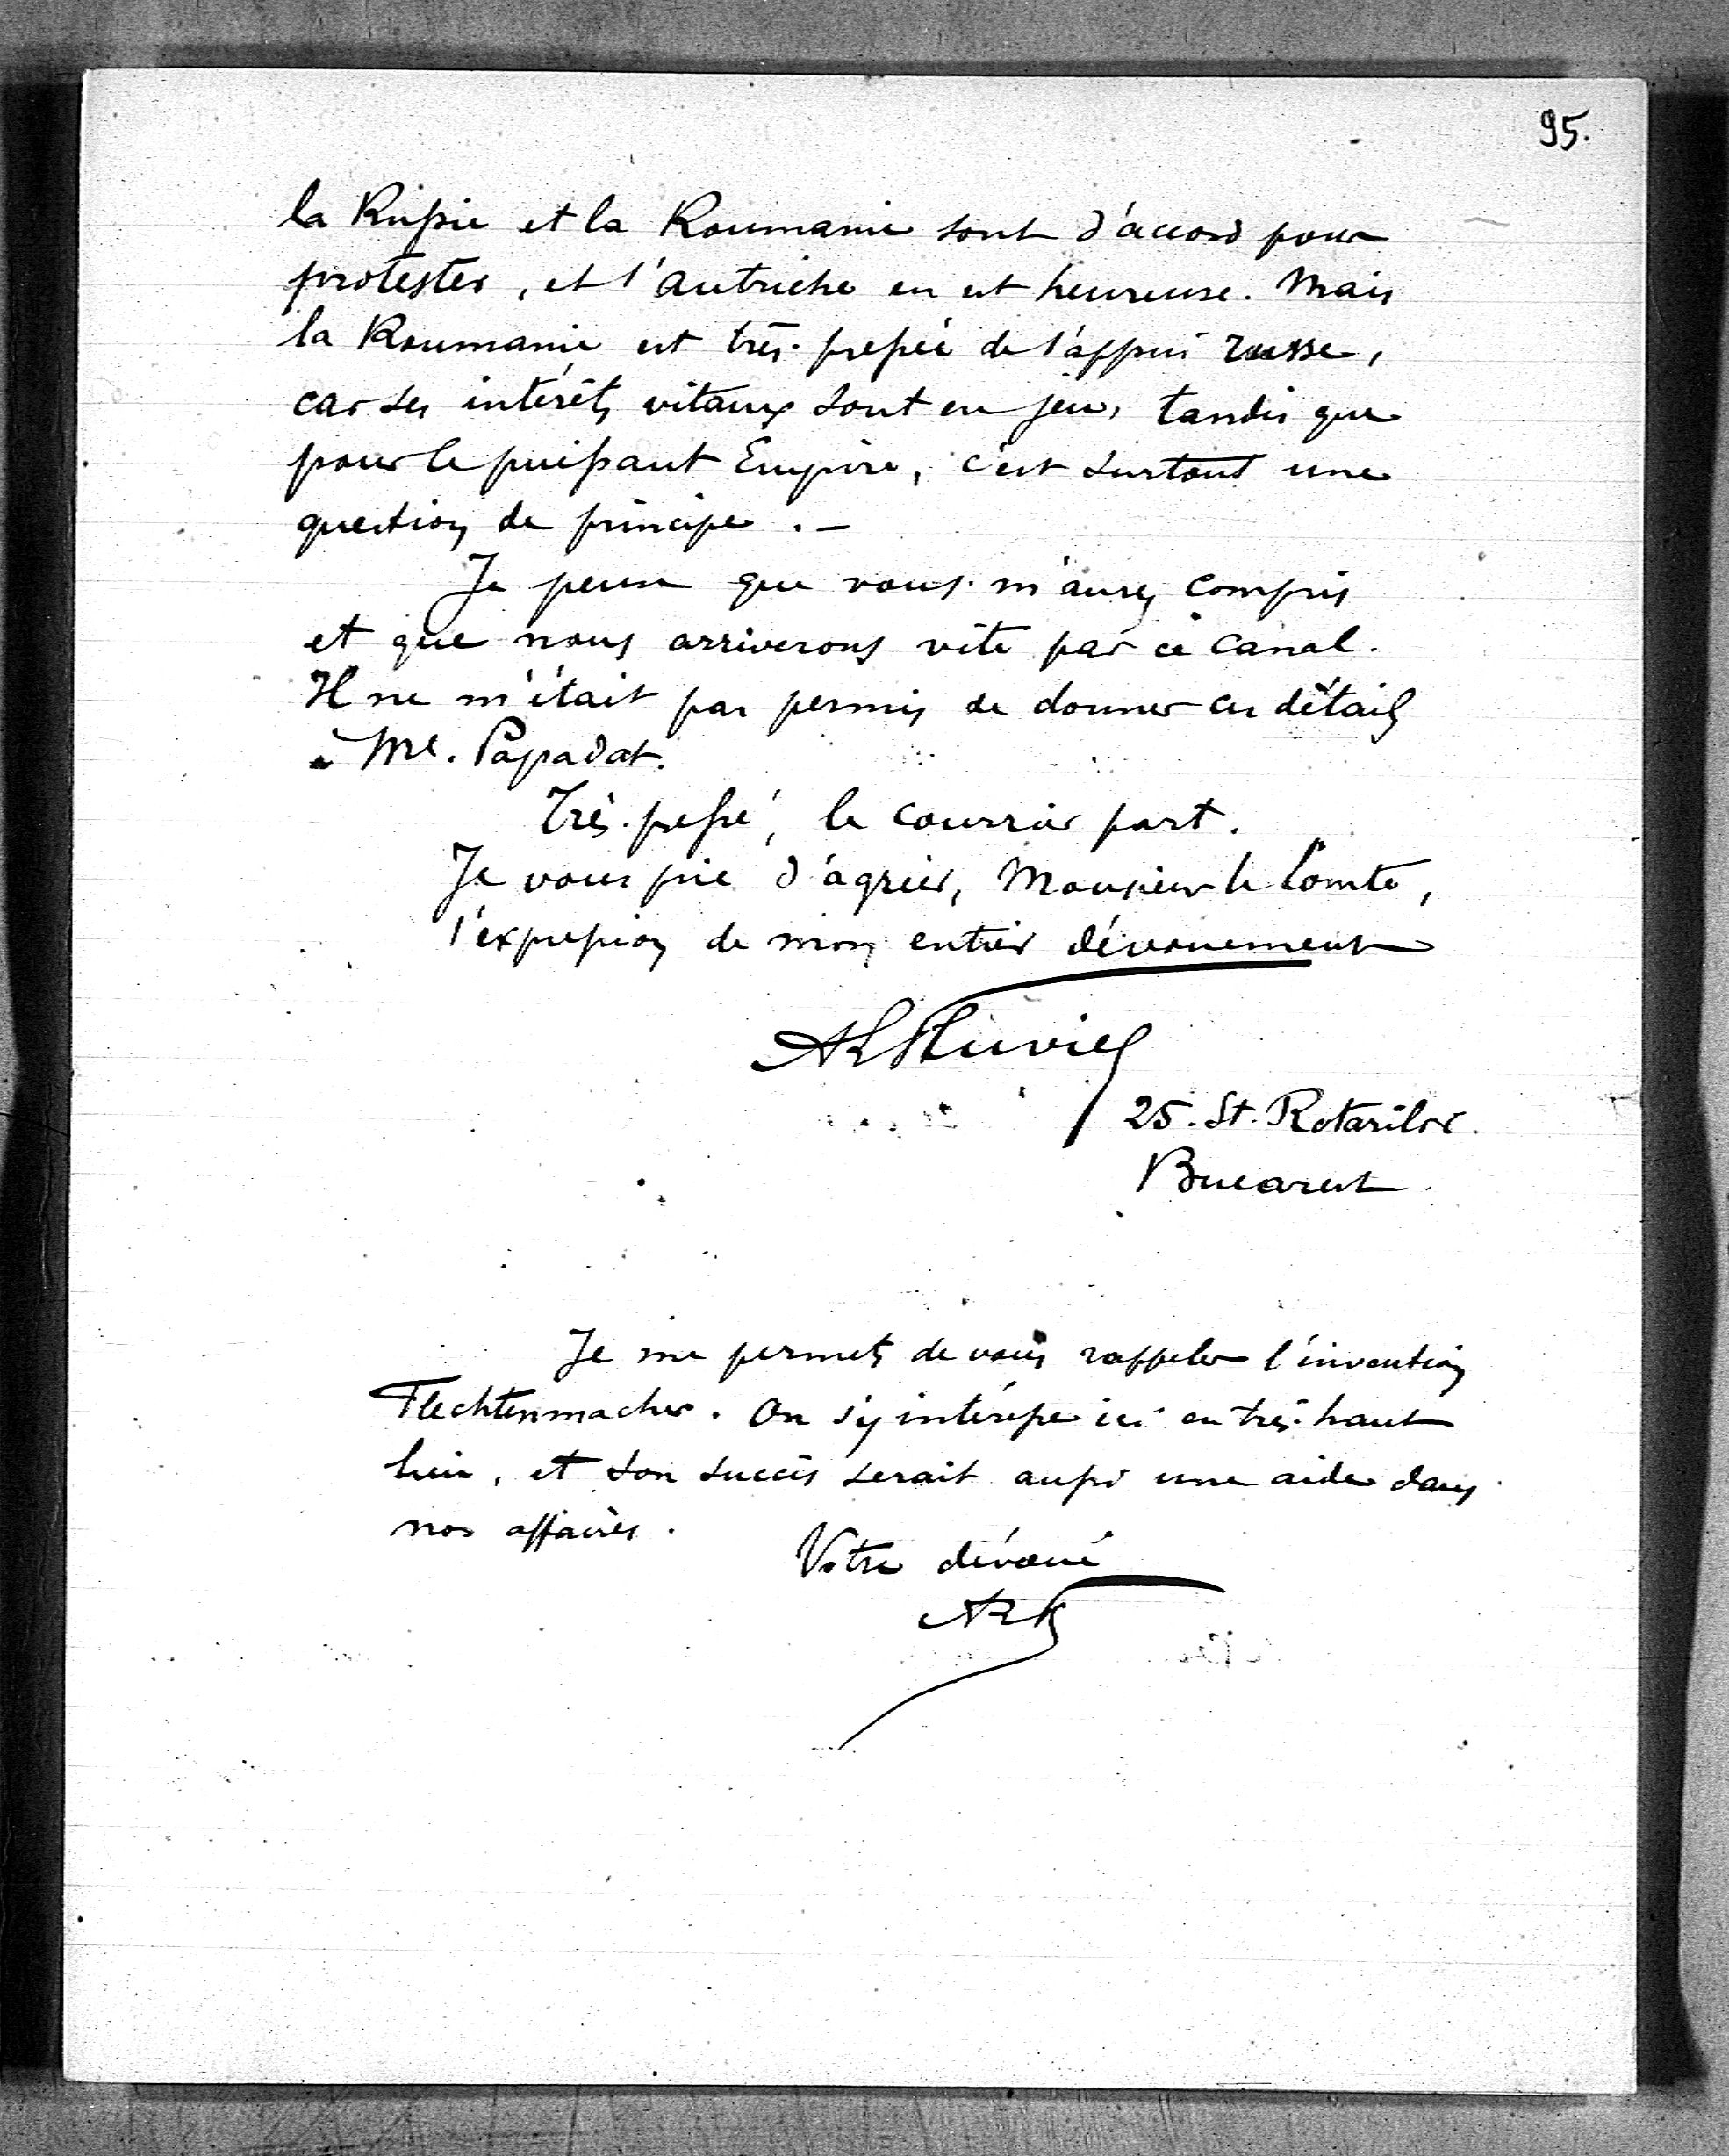 95.
la Russie et la Roumanie sont d'accord pour
protester, et l'Autriche en est heureuse. Mais
la Roumanie est très pressée de l'appui russe,
car ses intérêts vitaux sont en jeu, tandis que
pour le puissant Empire, c'est surtout une
question de principe. –
Je pense que vous m'aurez compris
et que nous arriverons vite par ce canal.
Il ne m'était pas permis de donner ces détails
à Mr. Papadat.
Très pressé, le courrier part.
Je vous prie d'agréer, Monsieur le Comte,
l'expression de mon entier dévouement
25. St. Rotarilor.
Bucarest.
Je me permets de vous rappeler l'invention
Flechtenmacher. On s'y intéresse ici en très haut
lieu, et son succès serait aussi une aide dans
nos affaires.
Votre dévoué